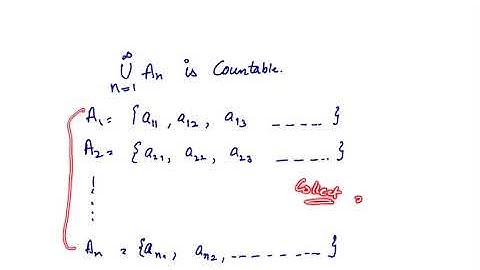 ∞
⋃ An is Countable.
n=1
A₁ = {a₁₁, a₁₂, a₁₃ -----}
A₂ = {a₂₁, a₂₂, a₂₃ -----}
Collect
An = {an₁, an₂, ---------}